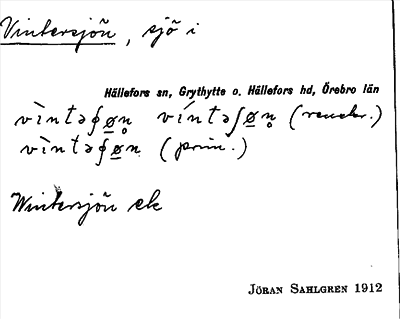 Vintersjön, sjö i
Hällefors sn, Grythytte o. Hällefors hd, Örebro län
vìntəʃø̲n̥ víntəʃø̲n̥ (
vìntəʃø̲n (prim.)
Wintersjön ek
JÖRAN SAHLGREN 1912